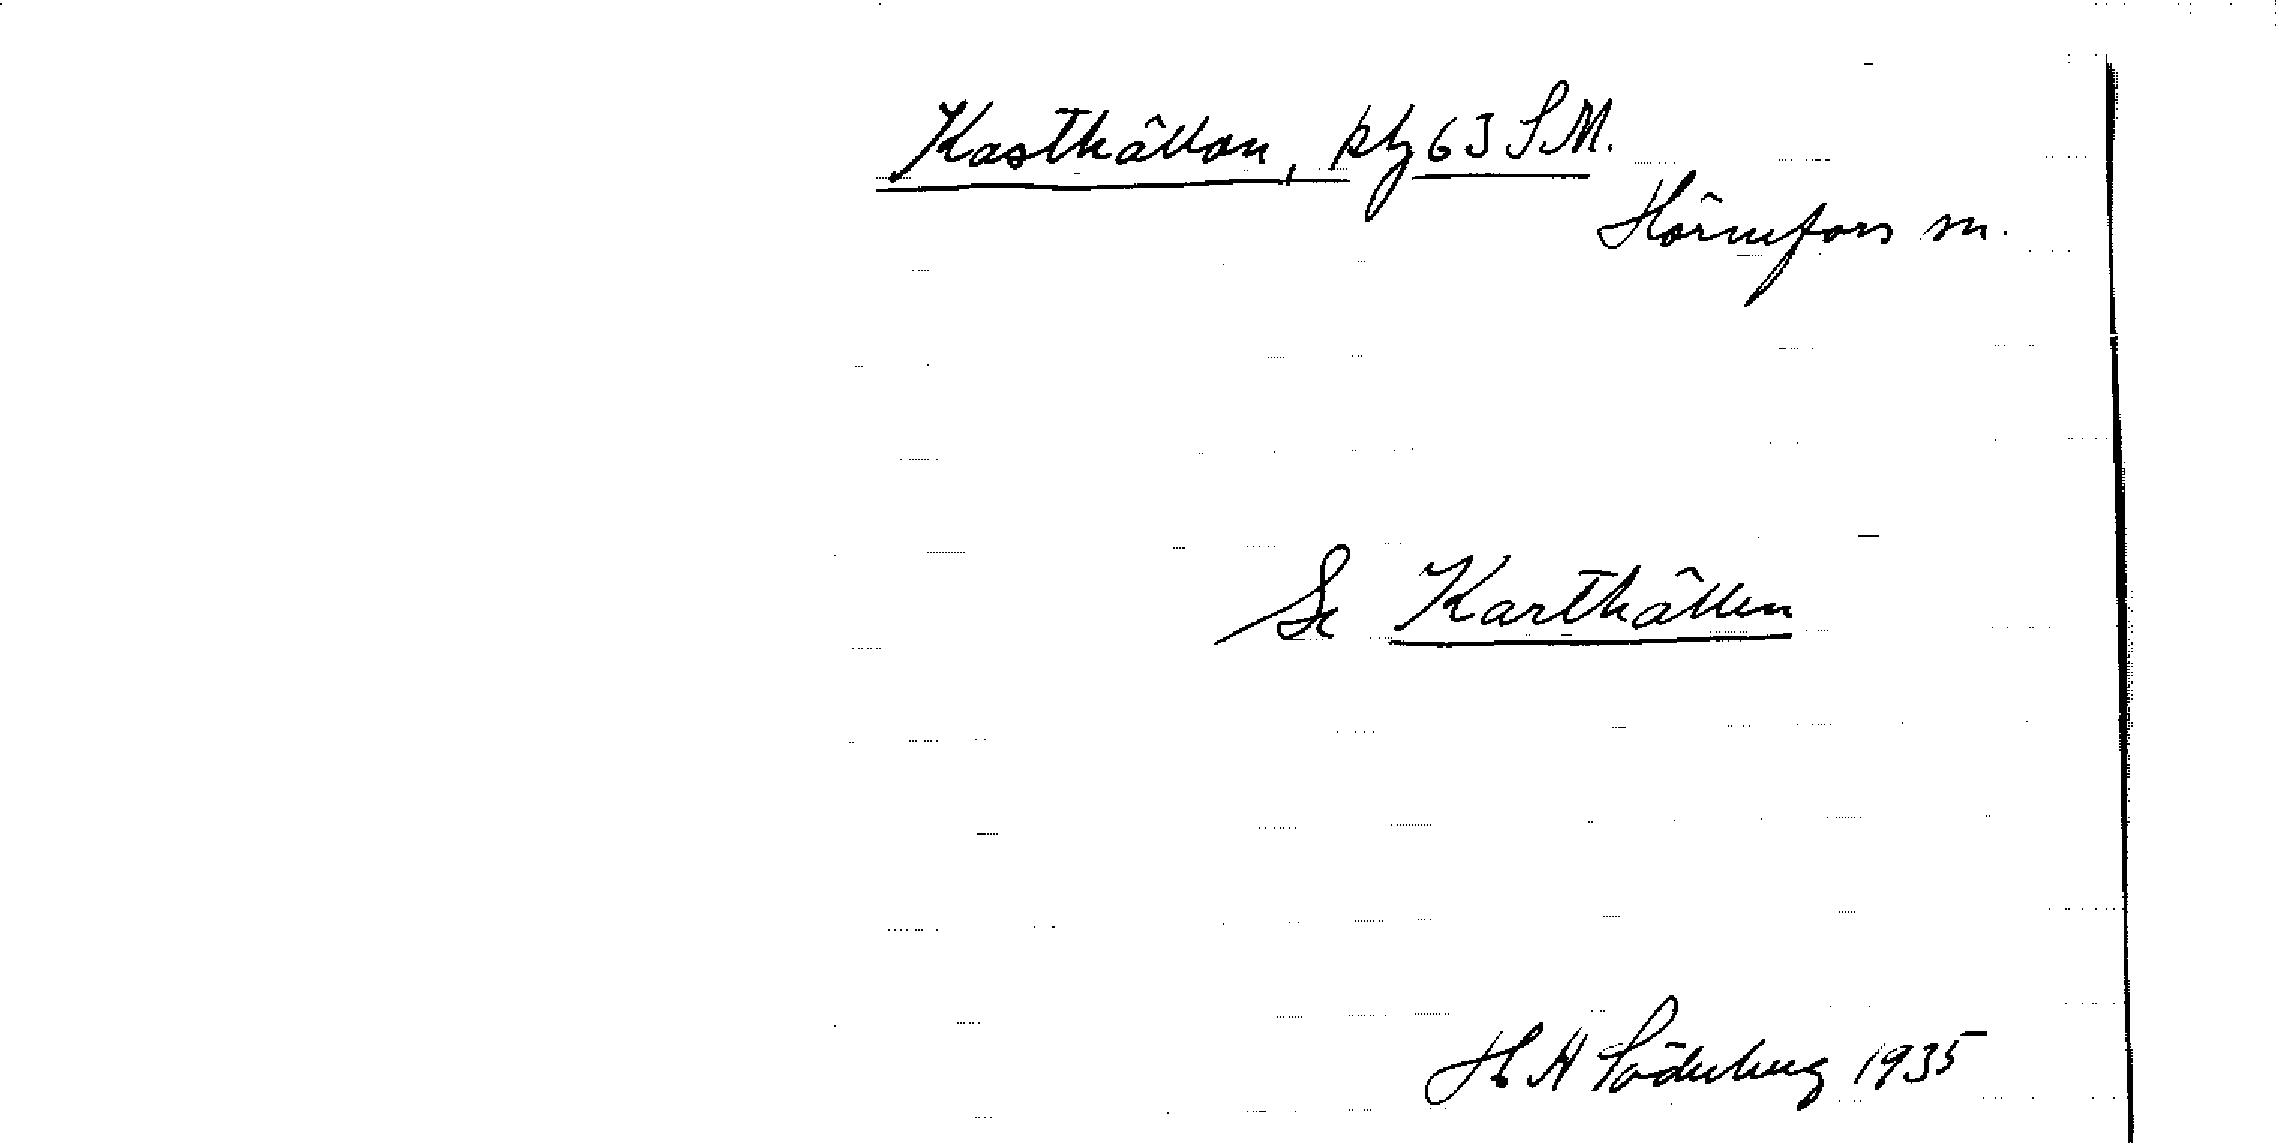 Kasthällan, kbz 63 S.M.
Hörnefors sn.
Se Karthällen
H A Söderberg 1935